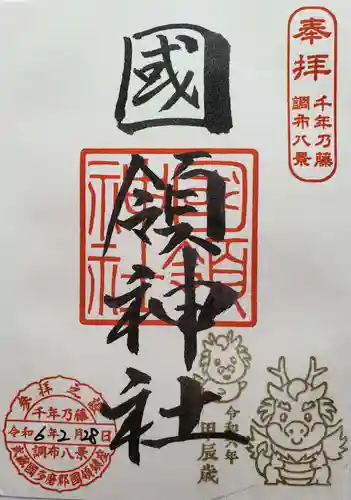 奉拝
千年乃藤
調布八景
國領神社
國領神社
令和六年
甲辰歳
参拝之証
千年乃藤
令和6年2月28日
調布八景
武蔵國多磨郡國領鎮座